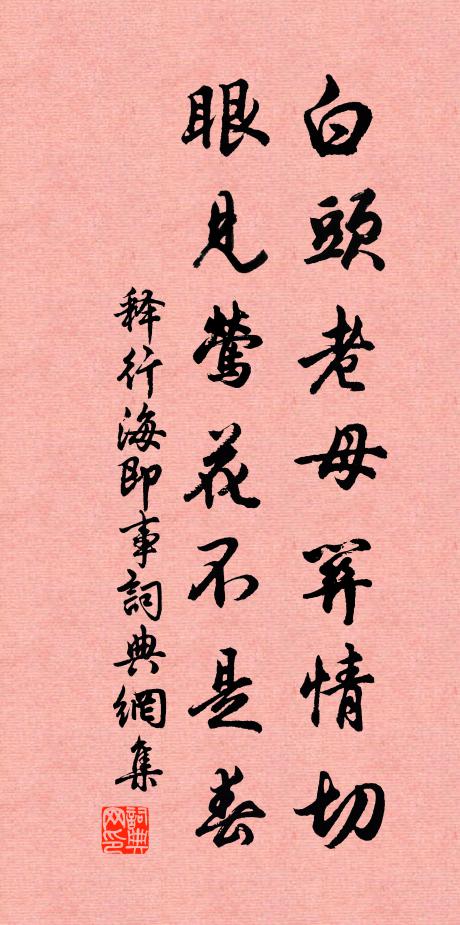 白頭老母關情切
眼見鶯花不是春
释行海即事詞典網集
詞典网印